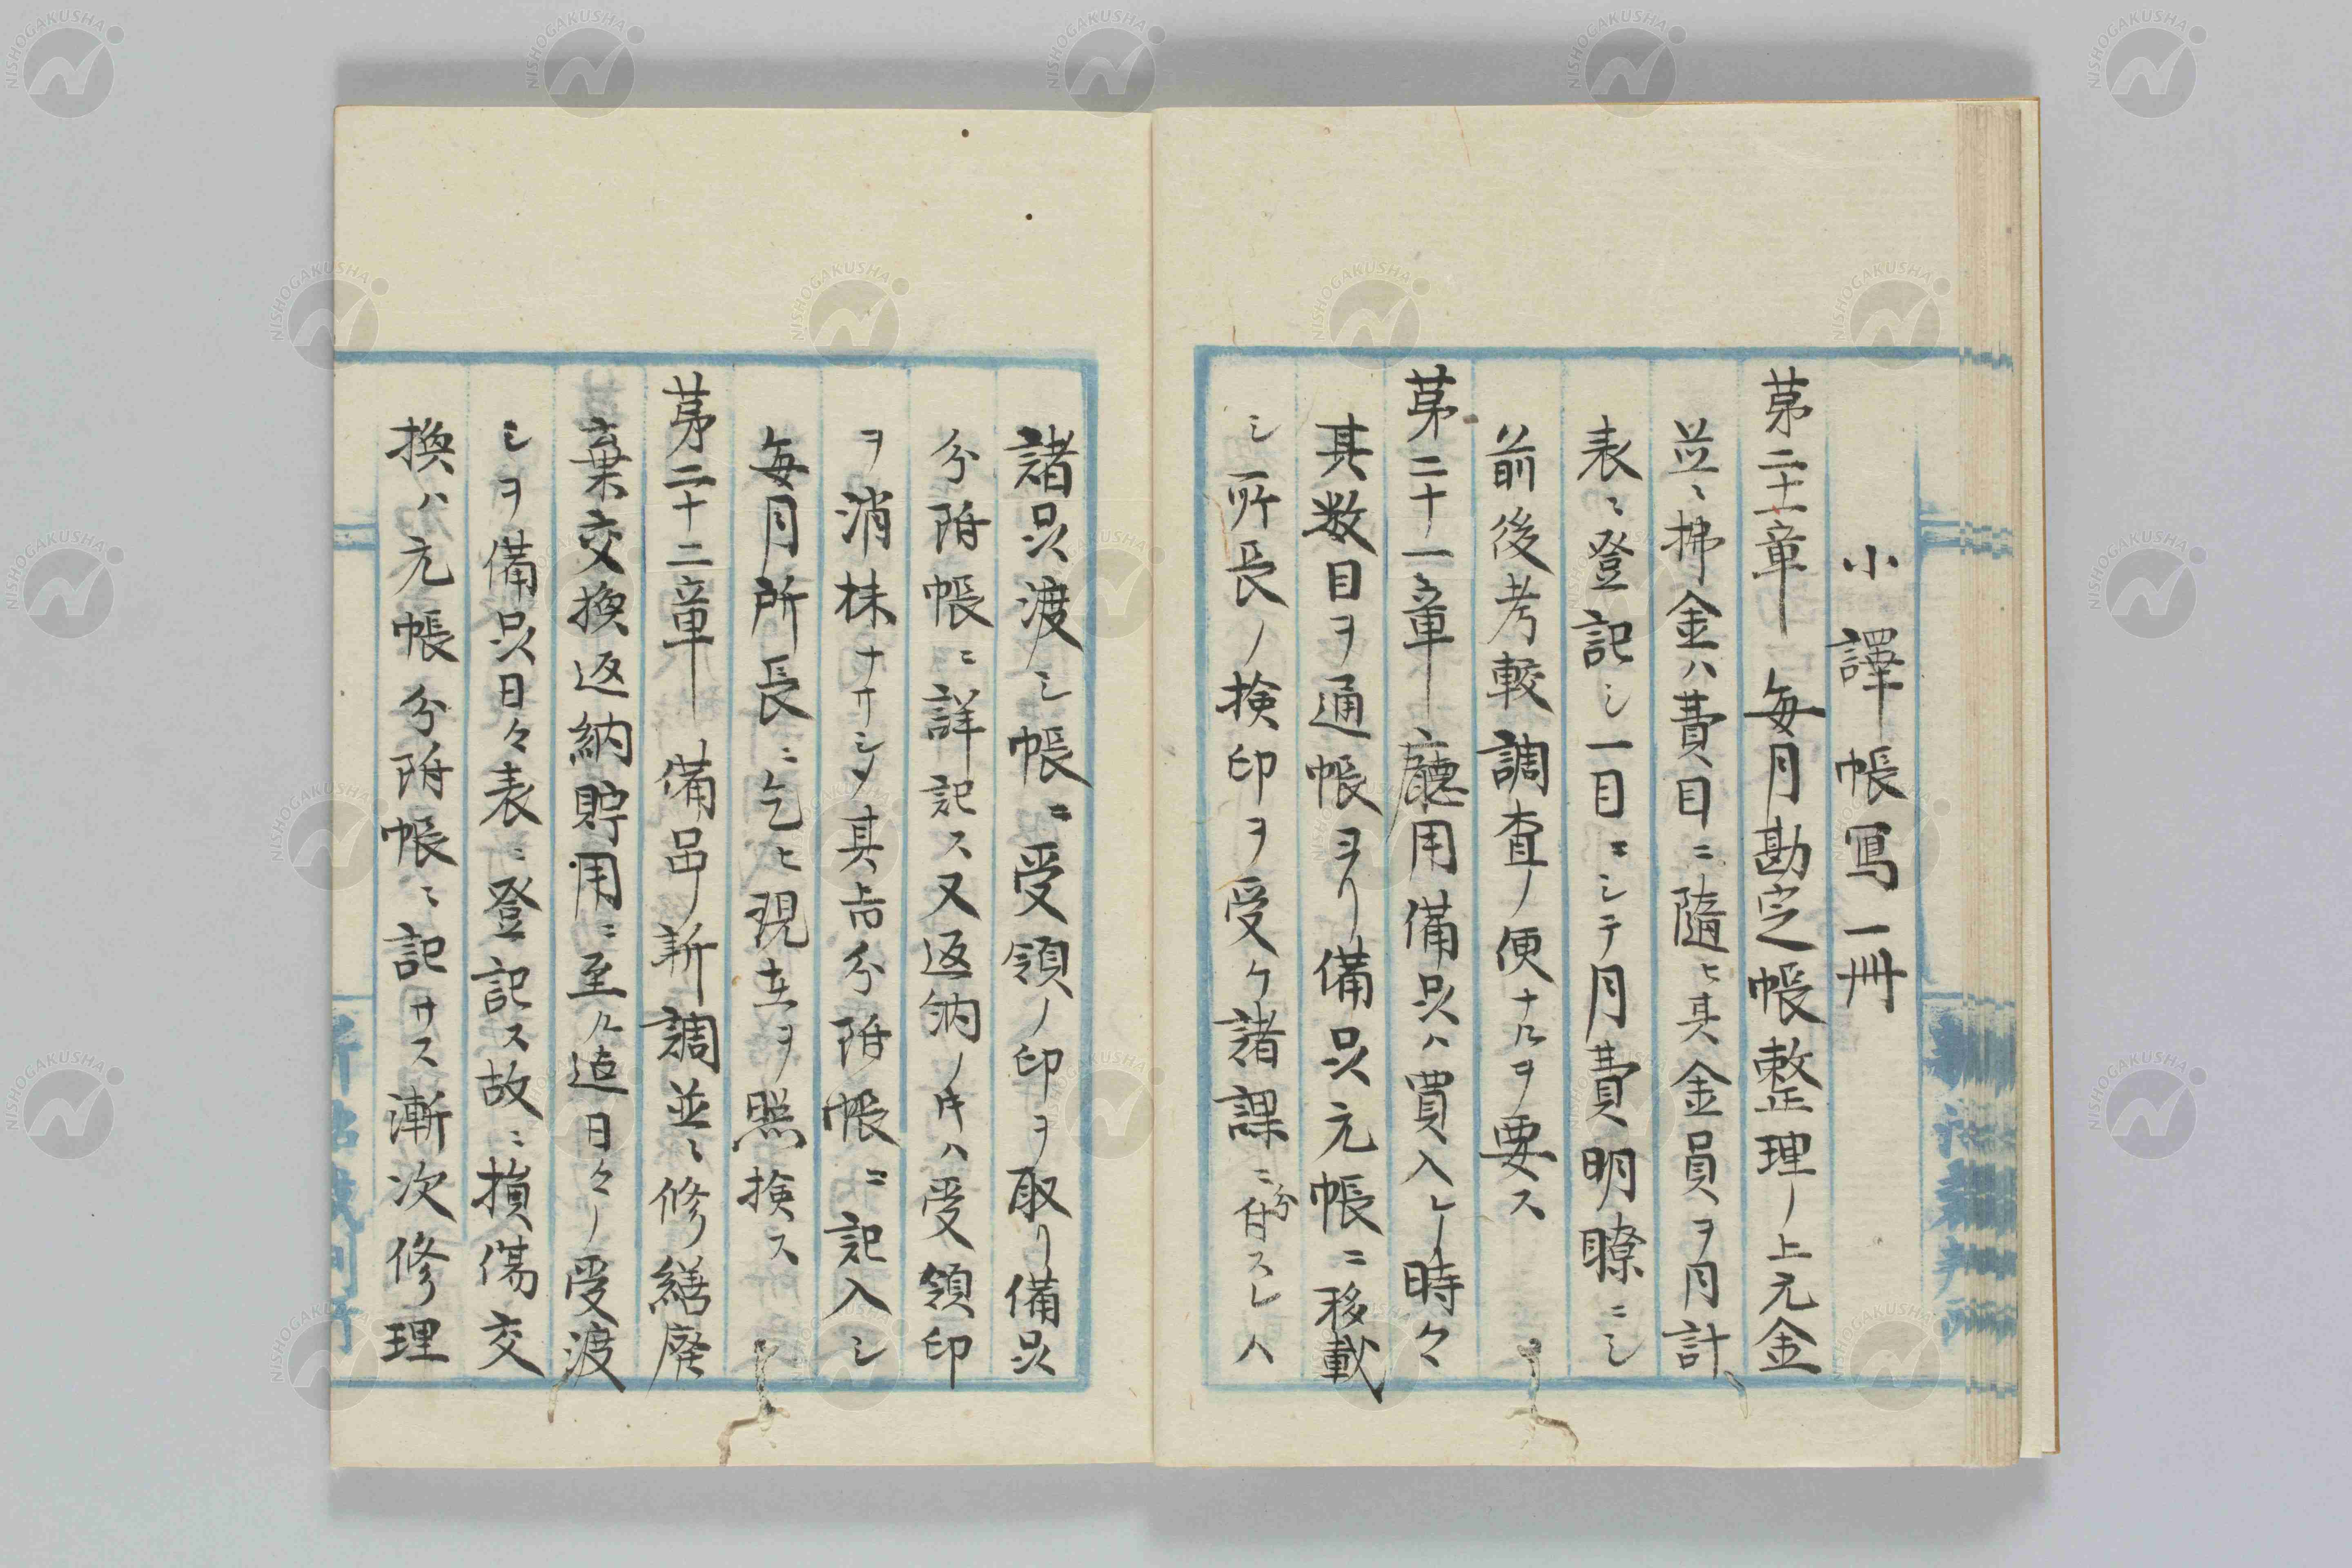 小譯帳寫一冊
第二十章 毎月勘定帳整理ノ上元金
並ニ拂金ハ費目ニ隨ヒ其金員ヲ月計
表ニ登記シ一目ニシテ月費明瞭ニシ
前後考較調査ノ便ナルヲ要ス
第二十一章 廳用備品ハ買入レノ時々
其数目ヲ通帳ヨリ備品元帳ニ移載
シ所長ノ検印ヲ受ケ諸課ニ分付スレハ
諸品渡シ帳ニ受領ノ印ヲ取リ備品
分附帳ニ詳記ス又返納ノ時ハ受領印
ヲ消抹ナサシメ其旨分附帳ニ記入シ
毎月所長ニ乞ヒ現在ヲ照検ス
第二十二章 備品新調並ニ修繕廃
棄交換返納貯用ニ至ル迠日々ノ受渡
シヲ備品日々表ニ登記ス故ニ損傷交
換ハ元帳分附帳ニ記サス漸次修理
NISHOGAKUSHA